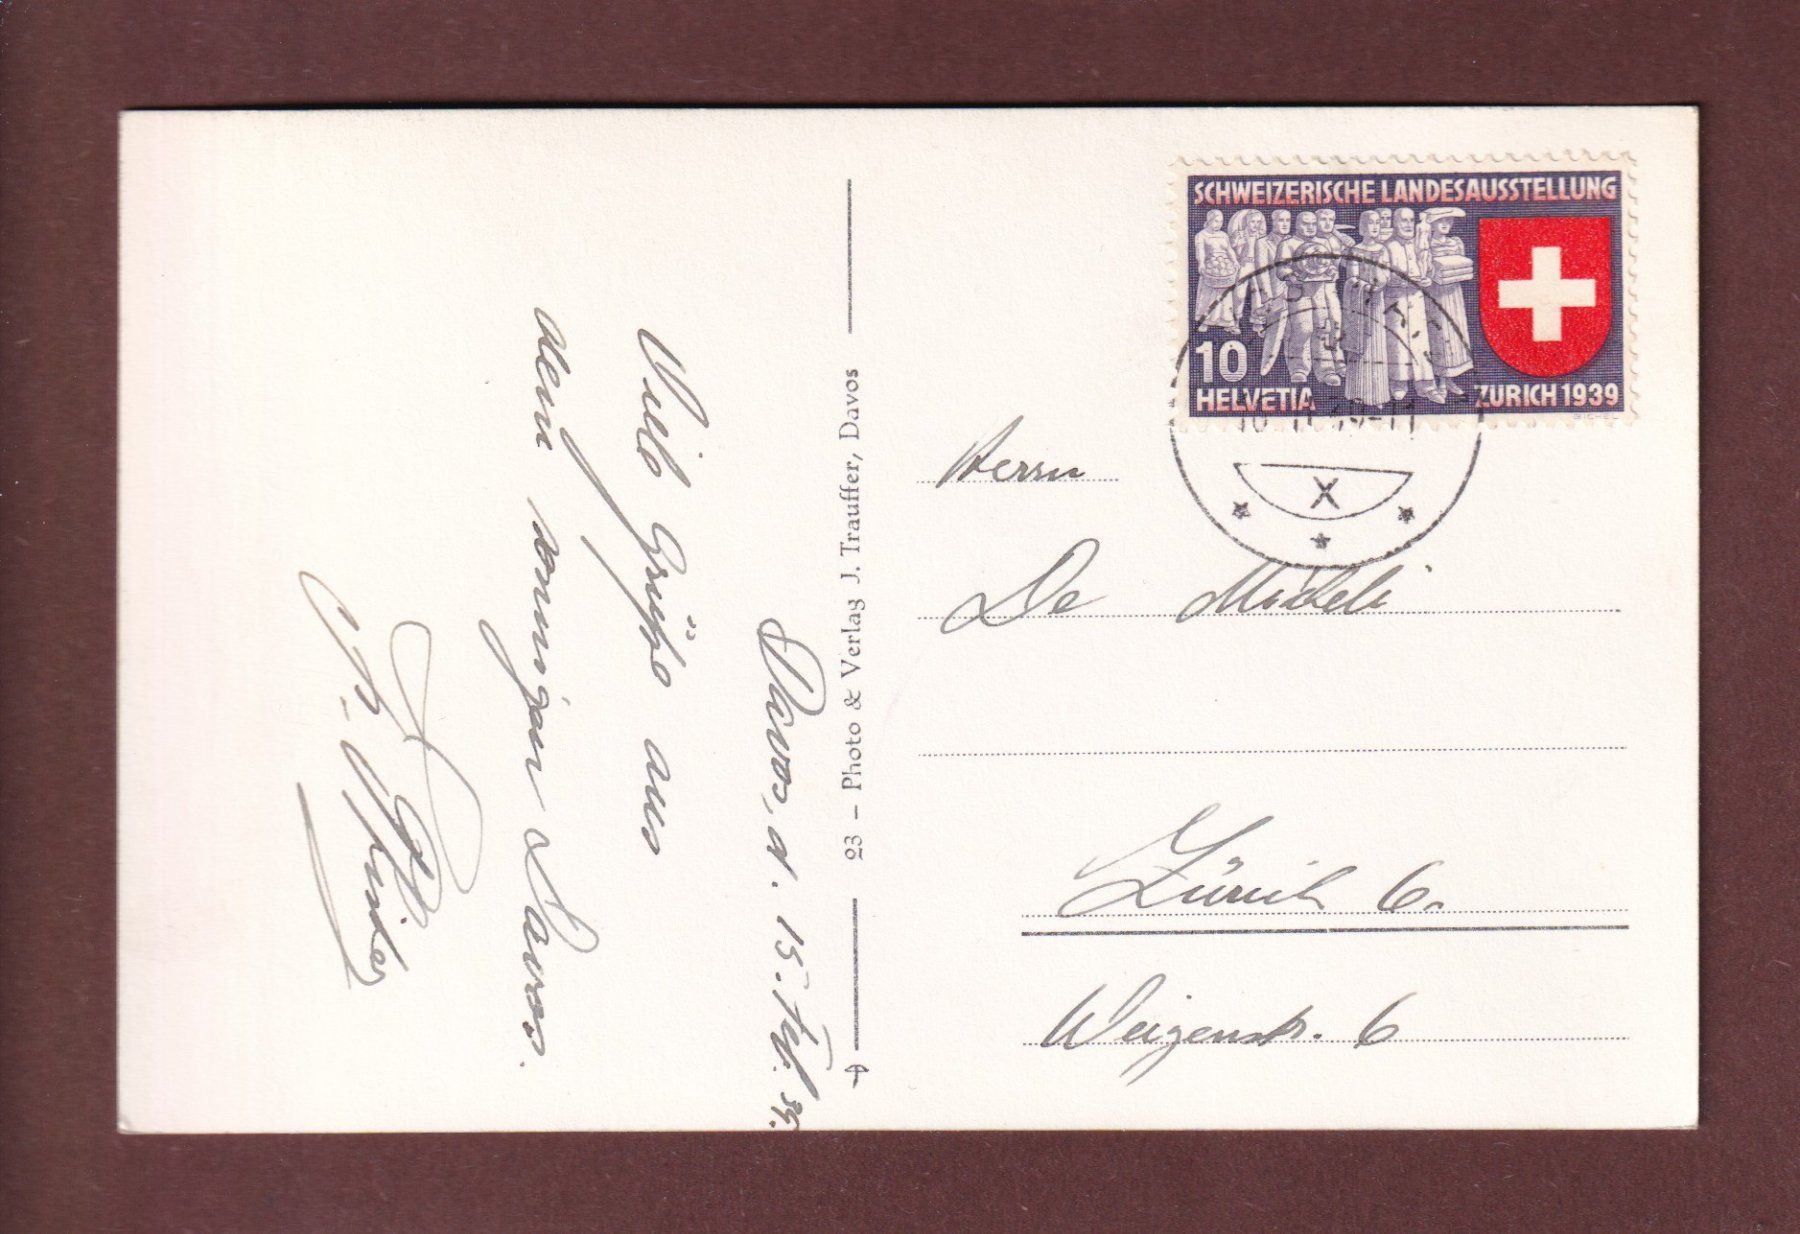 Davos, d. 15. Feb. 39.
Viele Grüße aus
dem sonnigen Davos.
23 – Photo & Verlag J. Trauffer, Davos
SCHWEIZERISCHE LANDESAUSSTELLUNG
10
HELVETIA
ZURICH 1939
X
Herrn
De Micheli
Zürich 6.
Weizenstr. 6